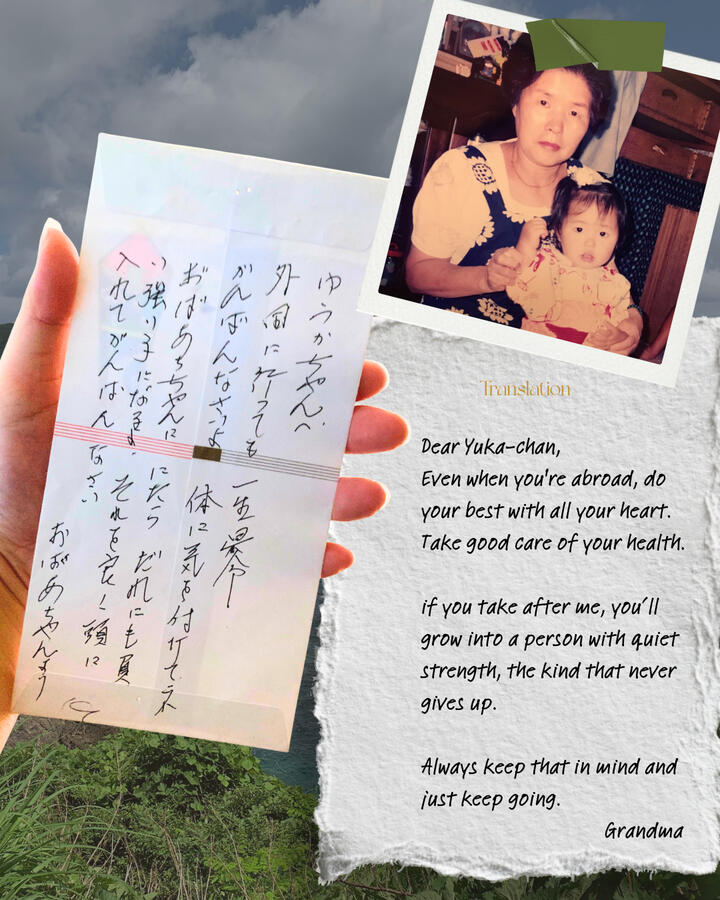 ゆうかちゃんへ
外国に行っても 一生懸命
がんばんなさいよ 体に気を付けてネ
おばあちゃんに にたら だれにも負
い強い子になるよ、それを良く頭に
入れてがんばんなさい
おばあちゃんより
Translation
Dear Yuka-chan,
Even when you're abroad, do
your best with all your heart.
Take good care of your health.
if you take after me, you'll
grow into a person with quiet
strength, the kind that never
gives up.
Always keep that in mind and
just keep going.
Grandma